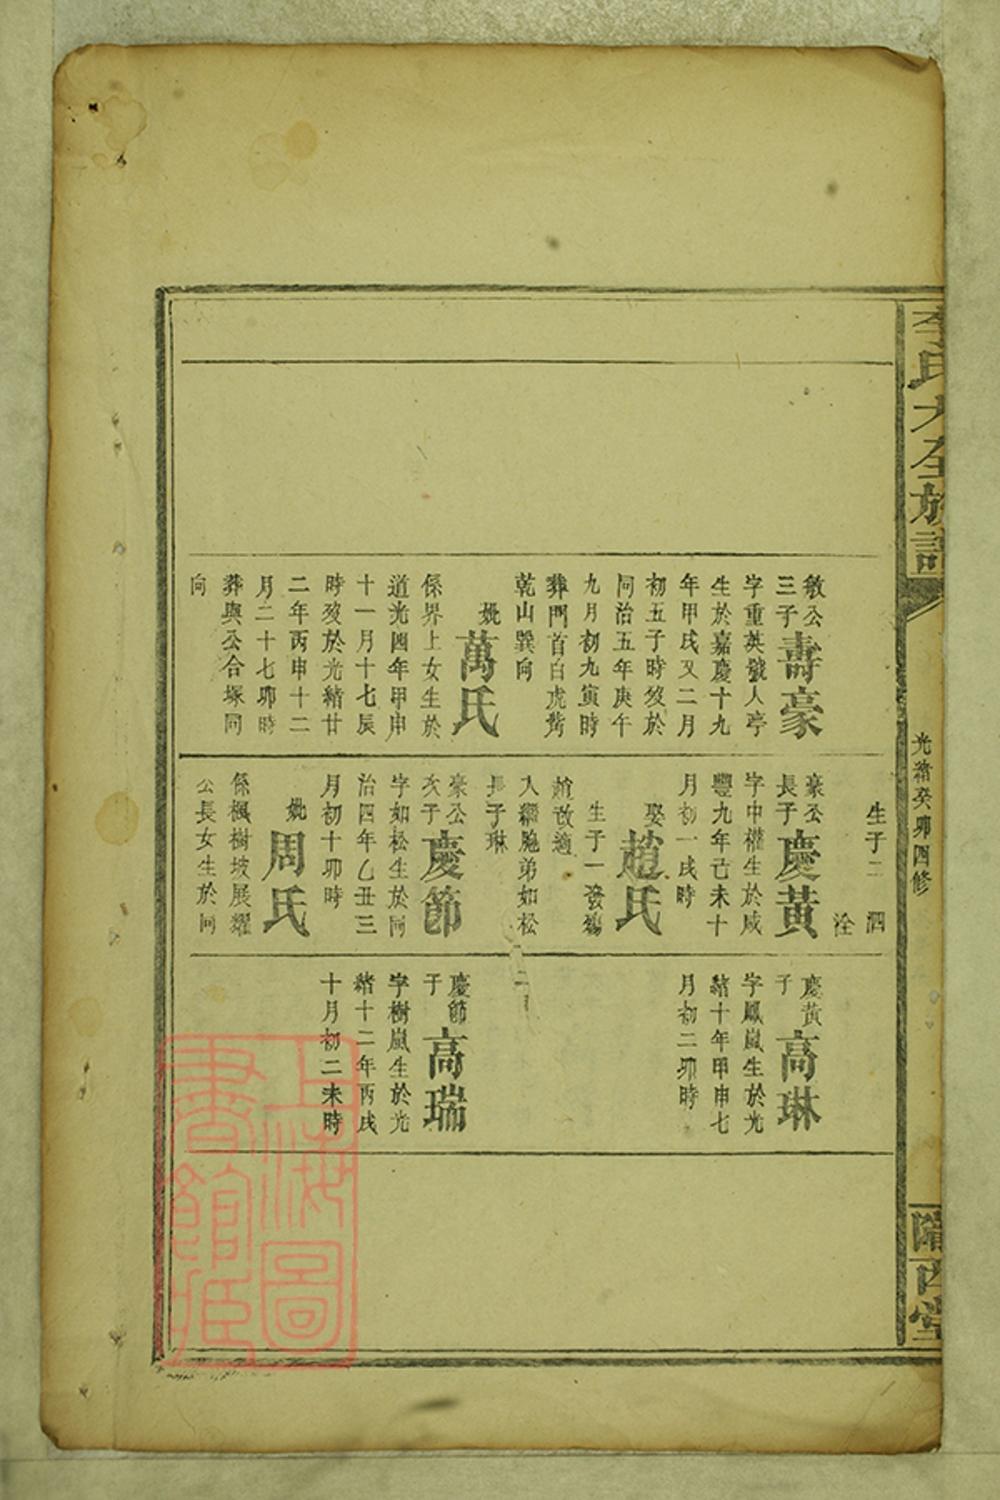 李氏大全族譜
光緒癸卯四修
隴西堂
敏公
三子
壽豪
字重英號人亭
生於嘉慶十九
年甲戌又二月
初五子時歿於
同治五年庚午
九月初九寅時
葬門首白虎嘴
乾山巽向
妣
萬氏
係界上女生於
道光四年甲申
十一月十七辰
時歿於光緒廿
二年丙申十二
月二十七卯時
葬與公合塚同
向
生子二 泗
淦
豪公
長子
慶黃
字中權生於咸
豐九年己未十
月初一戌時
娶
趙氏
生子一發
趙改適
入繼胞弟如松
長子琳
豪公
次子
慶節
字如松生於同
治四年乙丑三
月初十卯時
妣
周氏
係楓樹坡展耀
公長女生於同
慶黃
子
高琳
字鳳嵐生於光
緒十年甲申七
月初二卯時
慶節
子
高瑞
字樹嵐生於光
緒十二年丙戌
十月初二未時
上海圖
書館藏